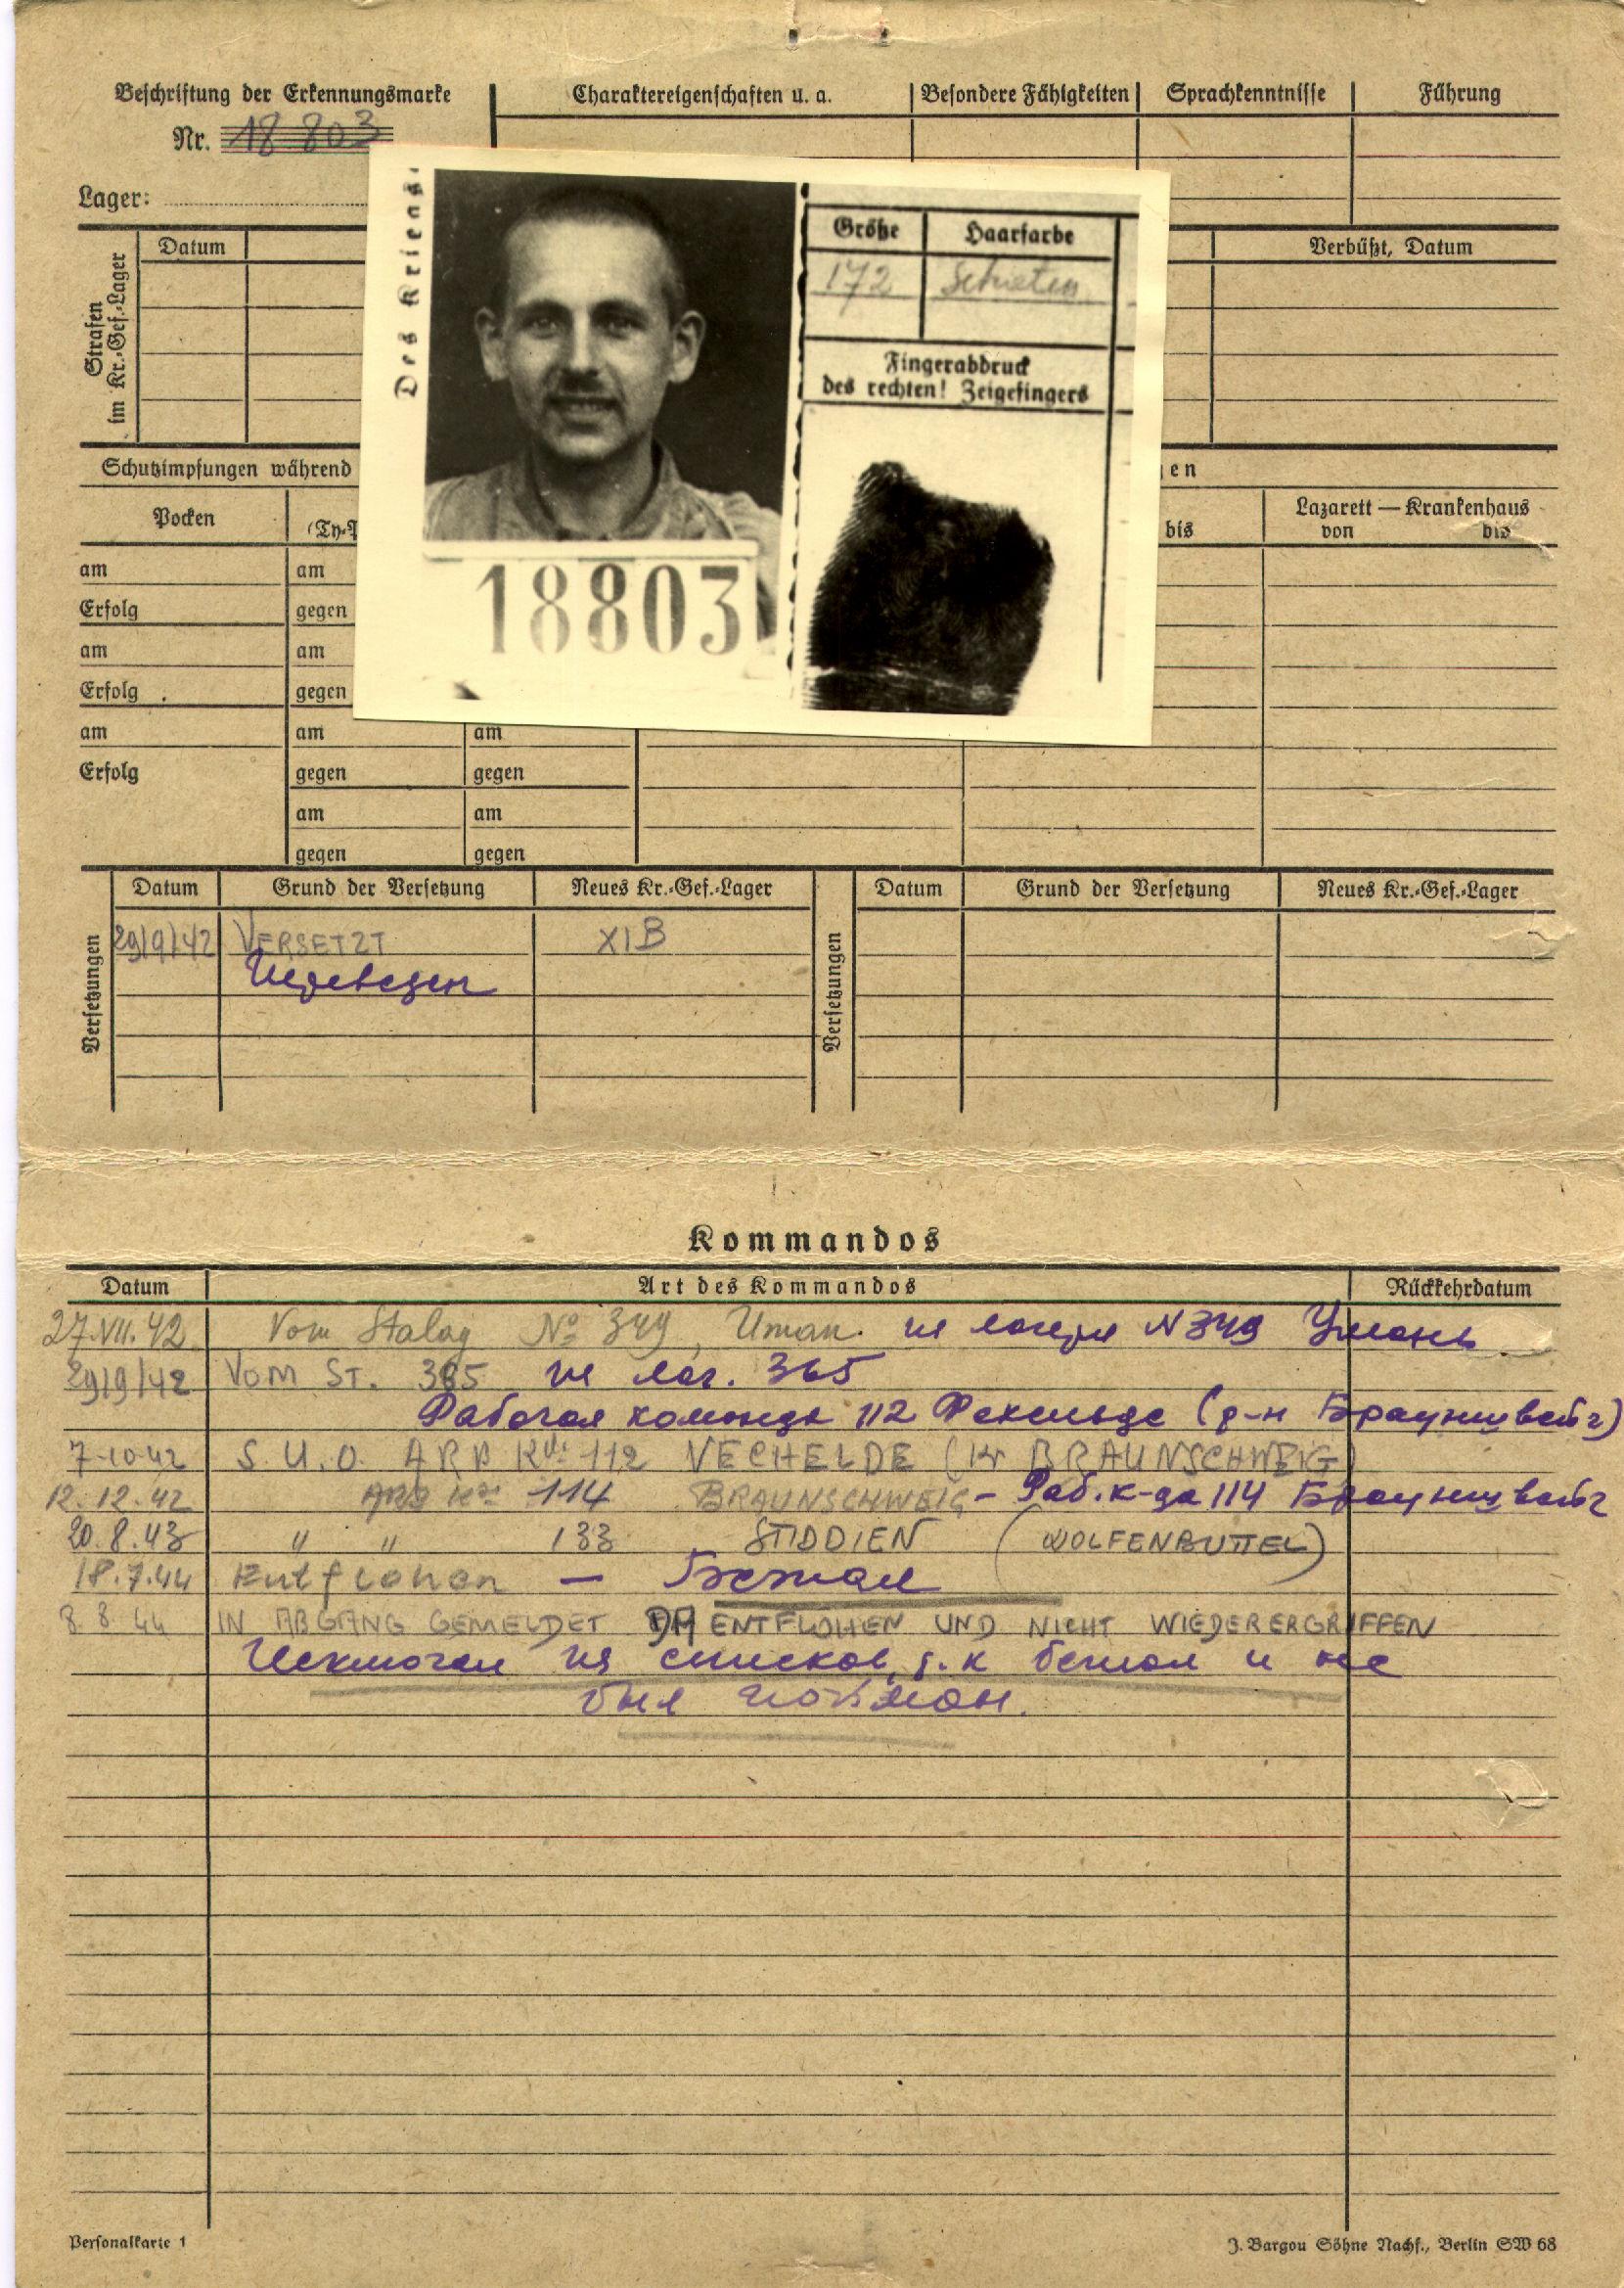 Beschriftung der Erkennungsmarke
Charaktereigenschaften u. a.
Besondere Fähigkeiten
Sprachkenntnisse
Führung
Nr. 18803
Lager:
Des Krieasi
Größe Haarfarbe
172
Fingerabdruck
des rechten! Zeigefingers
18803
Strafen
im Kr.-Gef.-Lager
Datum
Verbüßt, Datum
Schutzimpfungen während
en
Pocken
(Ty-P
bis
Lazarett — Krankenhaus
von bis
am am
Erfolg gegen
am am
Erfolg gegen
am am am
Erfolg gegen gegen
am am
gegen gegen
Versetzungen
Datum Grund der Versetzung Neues Kr.-Gef.-Lager
29/9/42 VERSETZT XIB
Переведен
Versetzungen
Datum Grund der Versetzung Neues Kr.-Gef.-Lager
Kommandos
Datum Art des Kommandos Rückkehrdatum
27.VII.42 Vom Stalag № 349, Uman. из лагеря N349 Умань
29/9/42 VOM ST. 365 из лаг. 365
Рабочая команда 112 Фехельде (р-н Брауншвейг)
7-10-42 S.U.O. ARB Kdo 112 VECHELDE (Kr BRAUNSCHWEIG)
12.12.42 ARB Kdo 114 BRAUNSCHWEIG - Раб. к-да 114 Брауншвейг
20.8.43 " " 133 STIDDIEN (WOLFENBUTTEL)
18.7.44 Entflohen — Бежал
8.8.44 IN ABGANG GEMELDET DA ENTFLOHEN UND NICHT WIEDERERGRIFFEN
Исключен из списков, т.к бежал и не
был пойман.
Personalkarte 1
J. Bargou Söhne Nachf., Berlin SW 68